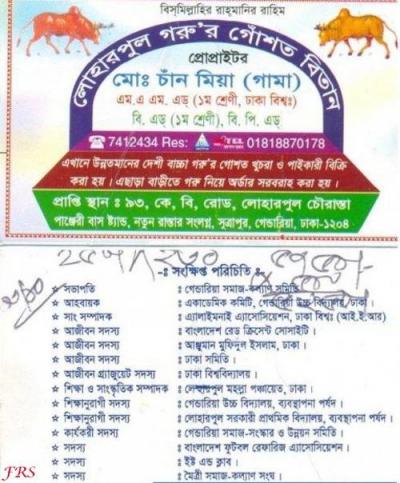 বিস্‌মিল্লাহির রাহ্‌মানির রাহিম
লোহারপুল গরু'র গোঁশত বিতান
প্রোপ্রাইটর
মোঃ চাঁন মিয়া (গামা)
এম.এ এম. এড্ (১ম শ্রেণী, ঢাকা বিশ্বঃ)
বি. এড্ (১ম শ্রেণী), বি. পি. এড্
7412434 Res: TEL 01818870178
এখানে উন্নতমানের দেশী বাচ্চা গরু'র গোঁশত খুচরা ও পাইকারী বিক্রি
করা হয়। এছাড়া বাড়ীতে গরু নিয়ে অর্ডার সরবরাহ করা হয়।
প্রাপ্তি স্থান : ৯৩, কে, বি, রোড, লোহারপুল চৌরাস্তা
পাঞ্জেরী বাস ষ্ট্যান্ড, নতুন রাস্তার সংলগ্ন, সূত্রাপুর, গেন্ডারিয়া, ঢাকা-১২০৪
-ঃ সংক্ষিপ্ত পরিচিতি ঃ-
☆ সভাপতি : গেন্ডারিয়া সমাজ-কল্যাণ সমিতি
☆ আহবায়ক : একাডেমিক কমিটি, গেন্ডারিয়া উচ্চ বিদ্যালয়, ঢাকা।
☆ সাং সম্পাদক : এ্যালাইমনাই এ্যাসোসিয়েশন, ঢাকা বিশ্বঃ (আই.ই.আর)
☆ আজীবন সদস্য : বাংলাদেশ রেড ক্রিসেন্ট সোসাইটি।
☆ আজীবন সদস্য : আঞ্জুমান মুফিদুল ইসলাম, ঢাকা।
☆ আজীবন সদস্য : ঢাকা সমিতি।
☆ আজীবন গ্র্যাজুয়েট সদস্য : ঢাকা বিশ্ববিদ্যালয়।
☆ শিক্ষা ও সাংস্কৃতিক সম্পাদক : লোহারপুল মহল্লা পঞ্চায়েত, ঢাকা।
☆ শিক্ষানুরাগী সদস্য : গেন্ডারিয়া উচ্চ বিদ্যালয়, ব্যবস্থাপনা পর্ষদ।
☆ শিক্ষানুরাগী সদস্য : লোহারপুল সরকারী প্রাথমিক বিদ্যালয়, ব্যবস্থাপনা পর্ষদ।
☆ কার্যকরী সদস্য : গেন্ডারিয়া সমাজ-সংস্কার ও উন্নয়ন সমিতি।
☆ সদস্য : বাংলাদেশ ফুটবল রেফারিজ এ্যাসোসিয়েশন।
☆ সদস্য : ইষ্ট এন্ড ক্লাব।
☆ সদস্য : মৈত্রী সমাজ-কল্যাণ সংঘ।
FRS